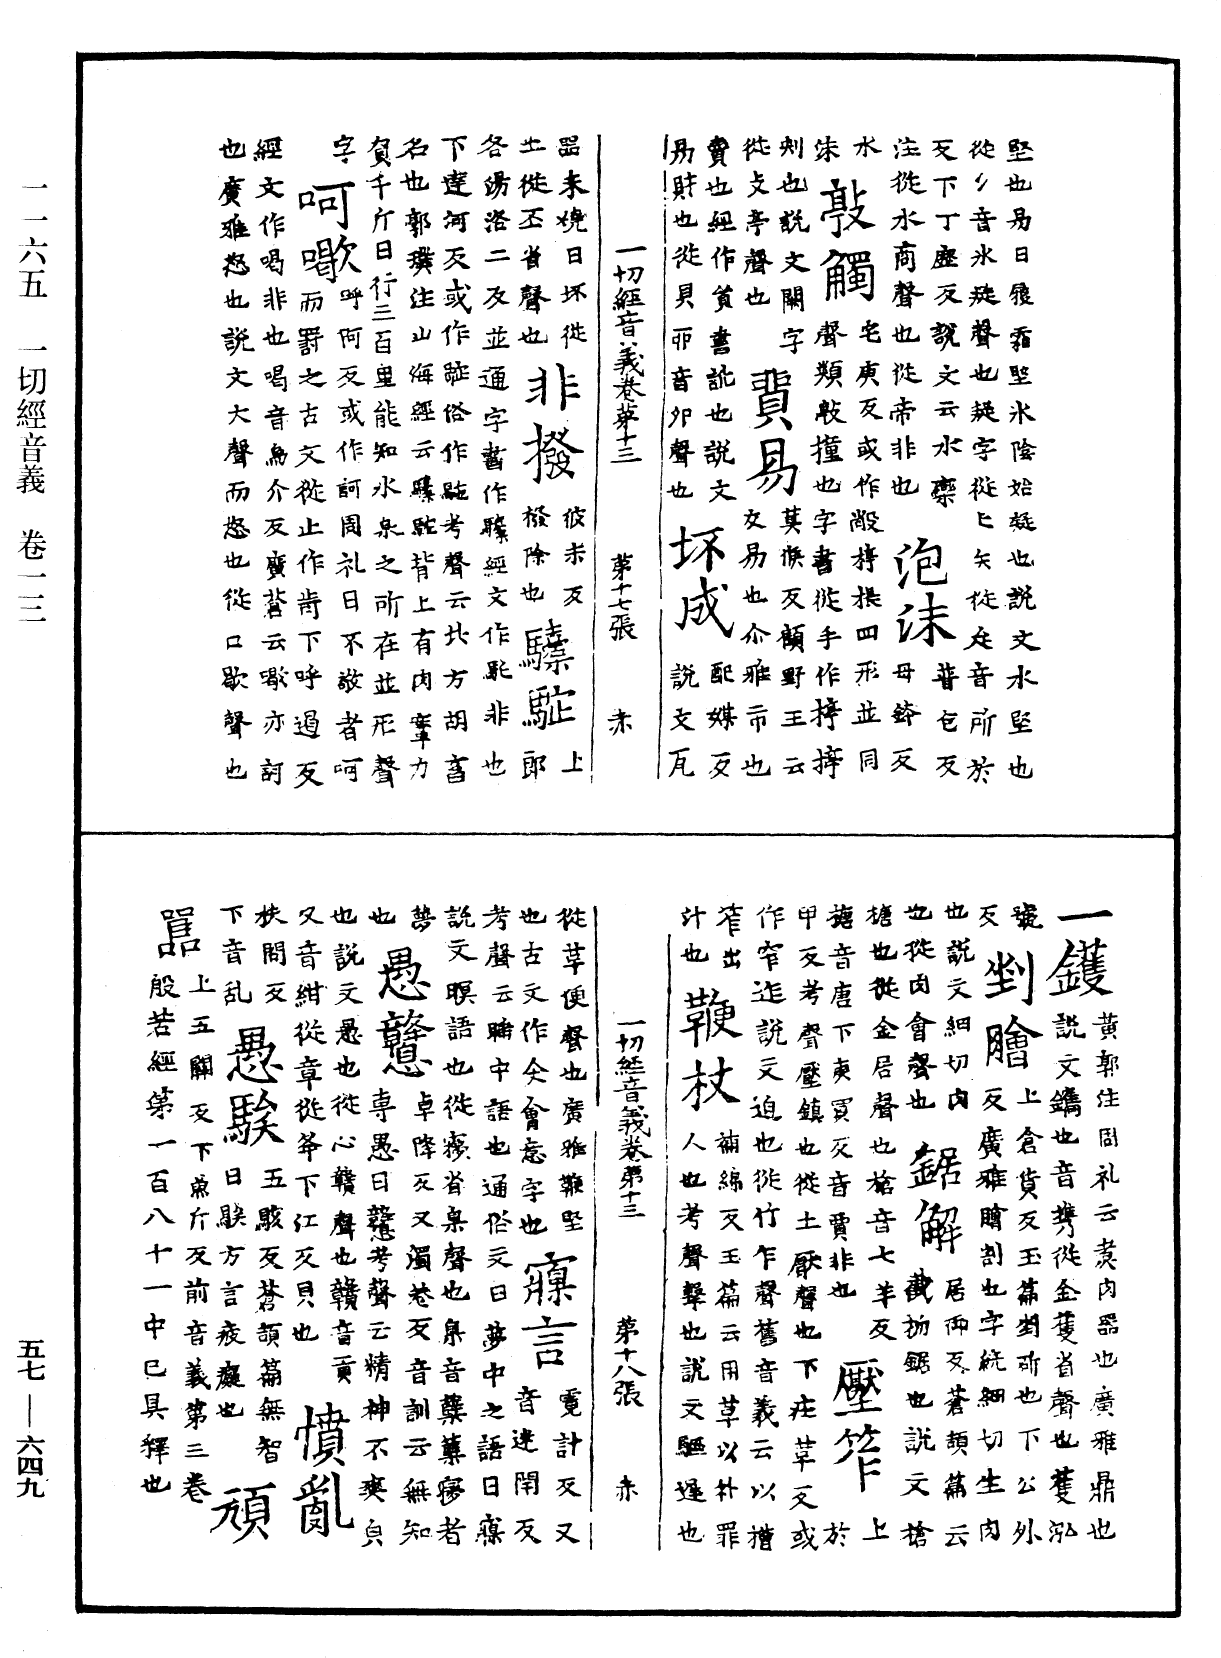 一一六五　一切經音義　卷一三
堅也易曰履霜堅氷陰始凝也說文水堅也
從冫音氷疑聲也疑字從匕矢從疋音所於
反下丁歷反說文云水欒泡沫普包反
注從水商聲也從帝非也母鉢反
水沫敲觸宅庚反或作敞揨掁四形並同
聲類敲撞也字書從手作揨揨
刺也說文闕字賈易莫候反顧野王云
從攴亭聲也交易也尒雅市也
賣也經作貿書訛也說文坏成配媒反
易財也從貝丣音夘聲也說文瓦
一切經音義卷第十三　第十七張　赤
器未燒曰坏從非撥撥除也驝駝上
土從丕省聲也彼末反郎
各湯洛二反並通字書作驝經文作馲非也
下達河反或作駞俗作駝考聲云北方胡畜
名也郭璞注山海經云驝駝背上有肉鞌力
負千斤日行三百里能知水泉之所在並形聲
字呵歇呼阿反或作訶周礼曰不敬者呵
而罸之古文從止作歬下呼遏反
經文作喝非也喝音烏介反廣蒼云歇亦訶
也廣雅怒也說文大聲而怒也從口歇聲也
一鑊黃郭注周礼云煮肉器也廣雅鼎也
說文鐫也音攜從金蒦省聲也蒦泓
號反剉膾上倉貨反玉篇剉斫也下公外
反廣雅膾割也字統細切生肉
也說文細切肉鋸解居御反蒼頡篇云
也從肉會聲也截物鋸也說文槍
槍也從金居聲也槍音七羊反壓笮上
槍音唐下更買反音賈非也於
甲反考聲壓鎮也從土厭聲也下莊革反或
作窄迮說文迫也從竹乍聲舊音義云以槽
笮出鞭杖補綿反玉篇云用革以扑罪
汁也人也考聲擊也說文驅遲也
一切經音義卷第十三　第十八張　赤
從革便聲也廣雅鞭堅寱言霓計反又
也古文作攴會意字也音迷閇反
考聲云睡中語也通俗文曰夢中之語曰寱
說文瞑語也從㝱省臬聲也臬音孽孽寱者
夢愚戇卓降反又濁巷反音訓云無知
也專愚曰戇考聲云精神不爽負
也說文愚也從心贛聲也贛音貢憒亂
又音紺從章從夅下江反貝也
扶問反愚騃五駭反蒼頡篇無智
下音乱曰騃方言癡癡也頑
嚚上五關反下魚斤反前音義第三卷
般若經第一百八十一中已具釋也
五七—六四九